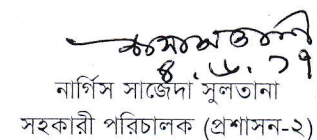 ৪.৬.১৭
নার্গিস সাজেদা সুলতানা
সহকারী পরিচালক (প্রশাসন-২)